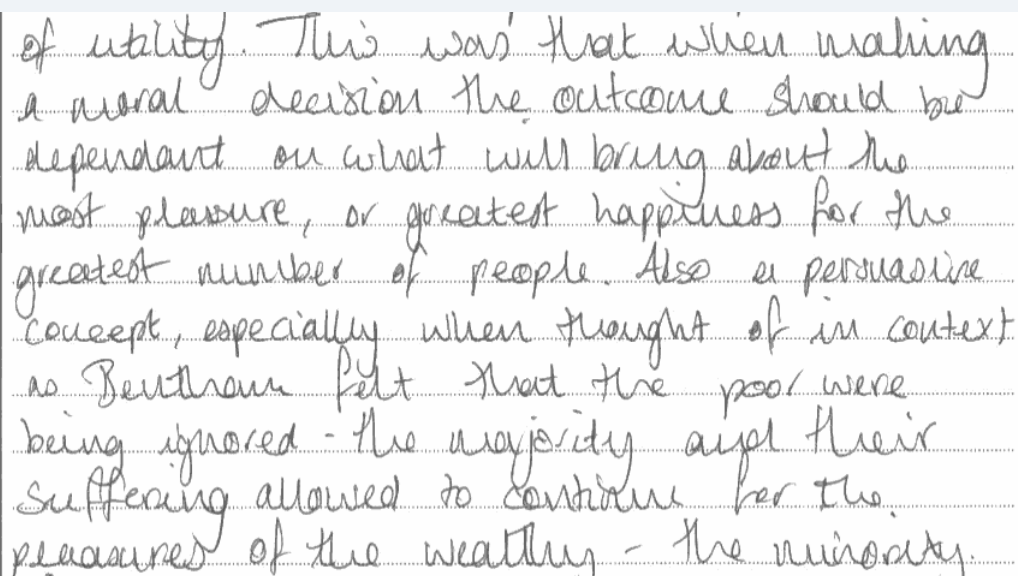 of utility. This was that when making
a moral decision the outcome should be
dependant on what will bring about the
most pleasure, or greatest happiness for the
greatest number of people. Also a persuasive
concept, especially when thought of in context
as Bentham felt that the poor were
being ignored - the majority and their
suffering allowed to continue for the
pleasures of the wealthy - the minority.